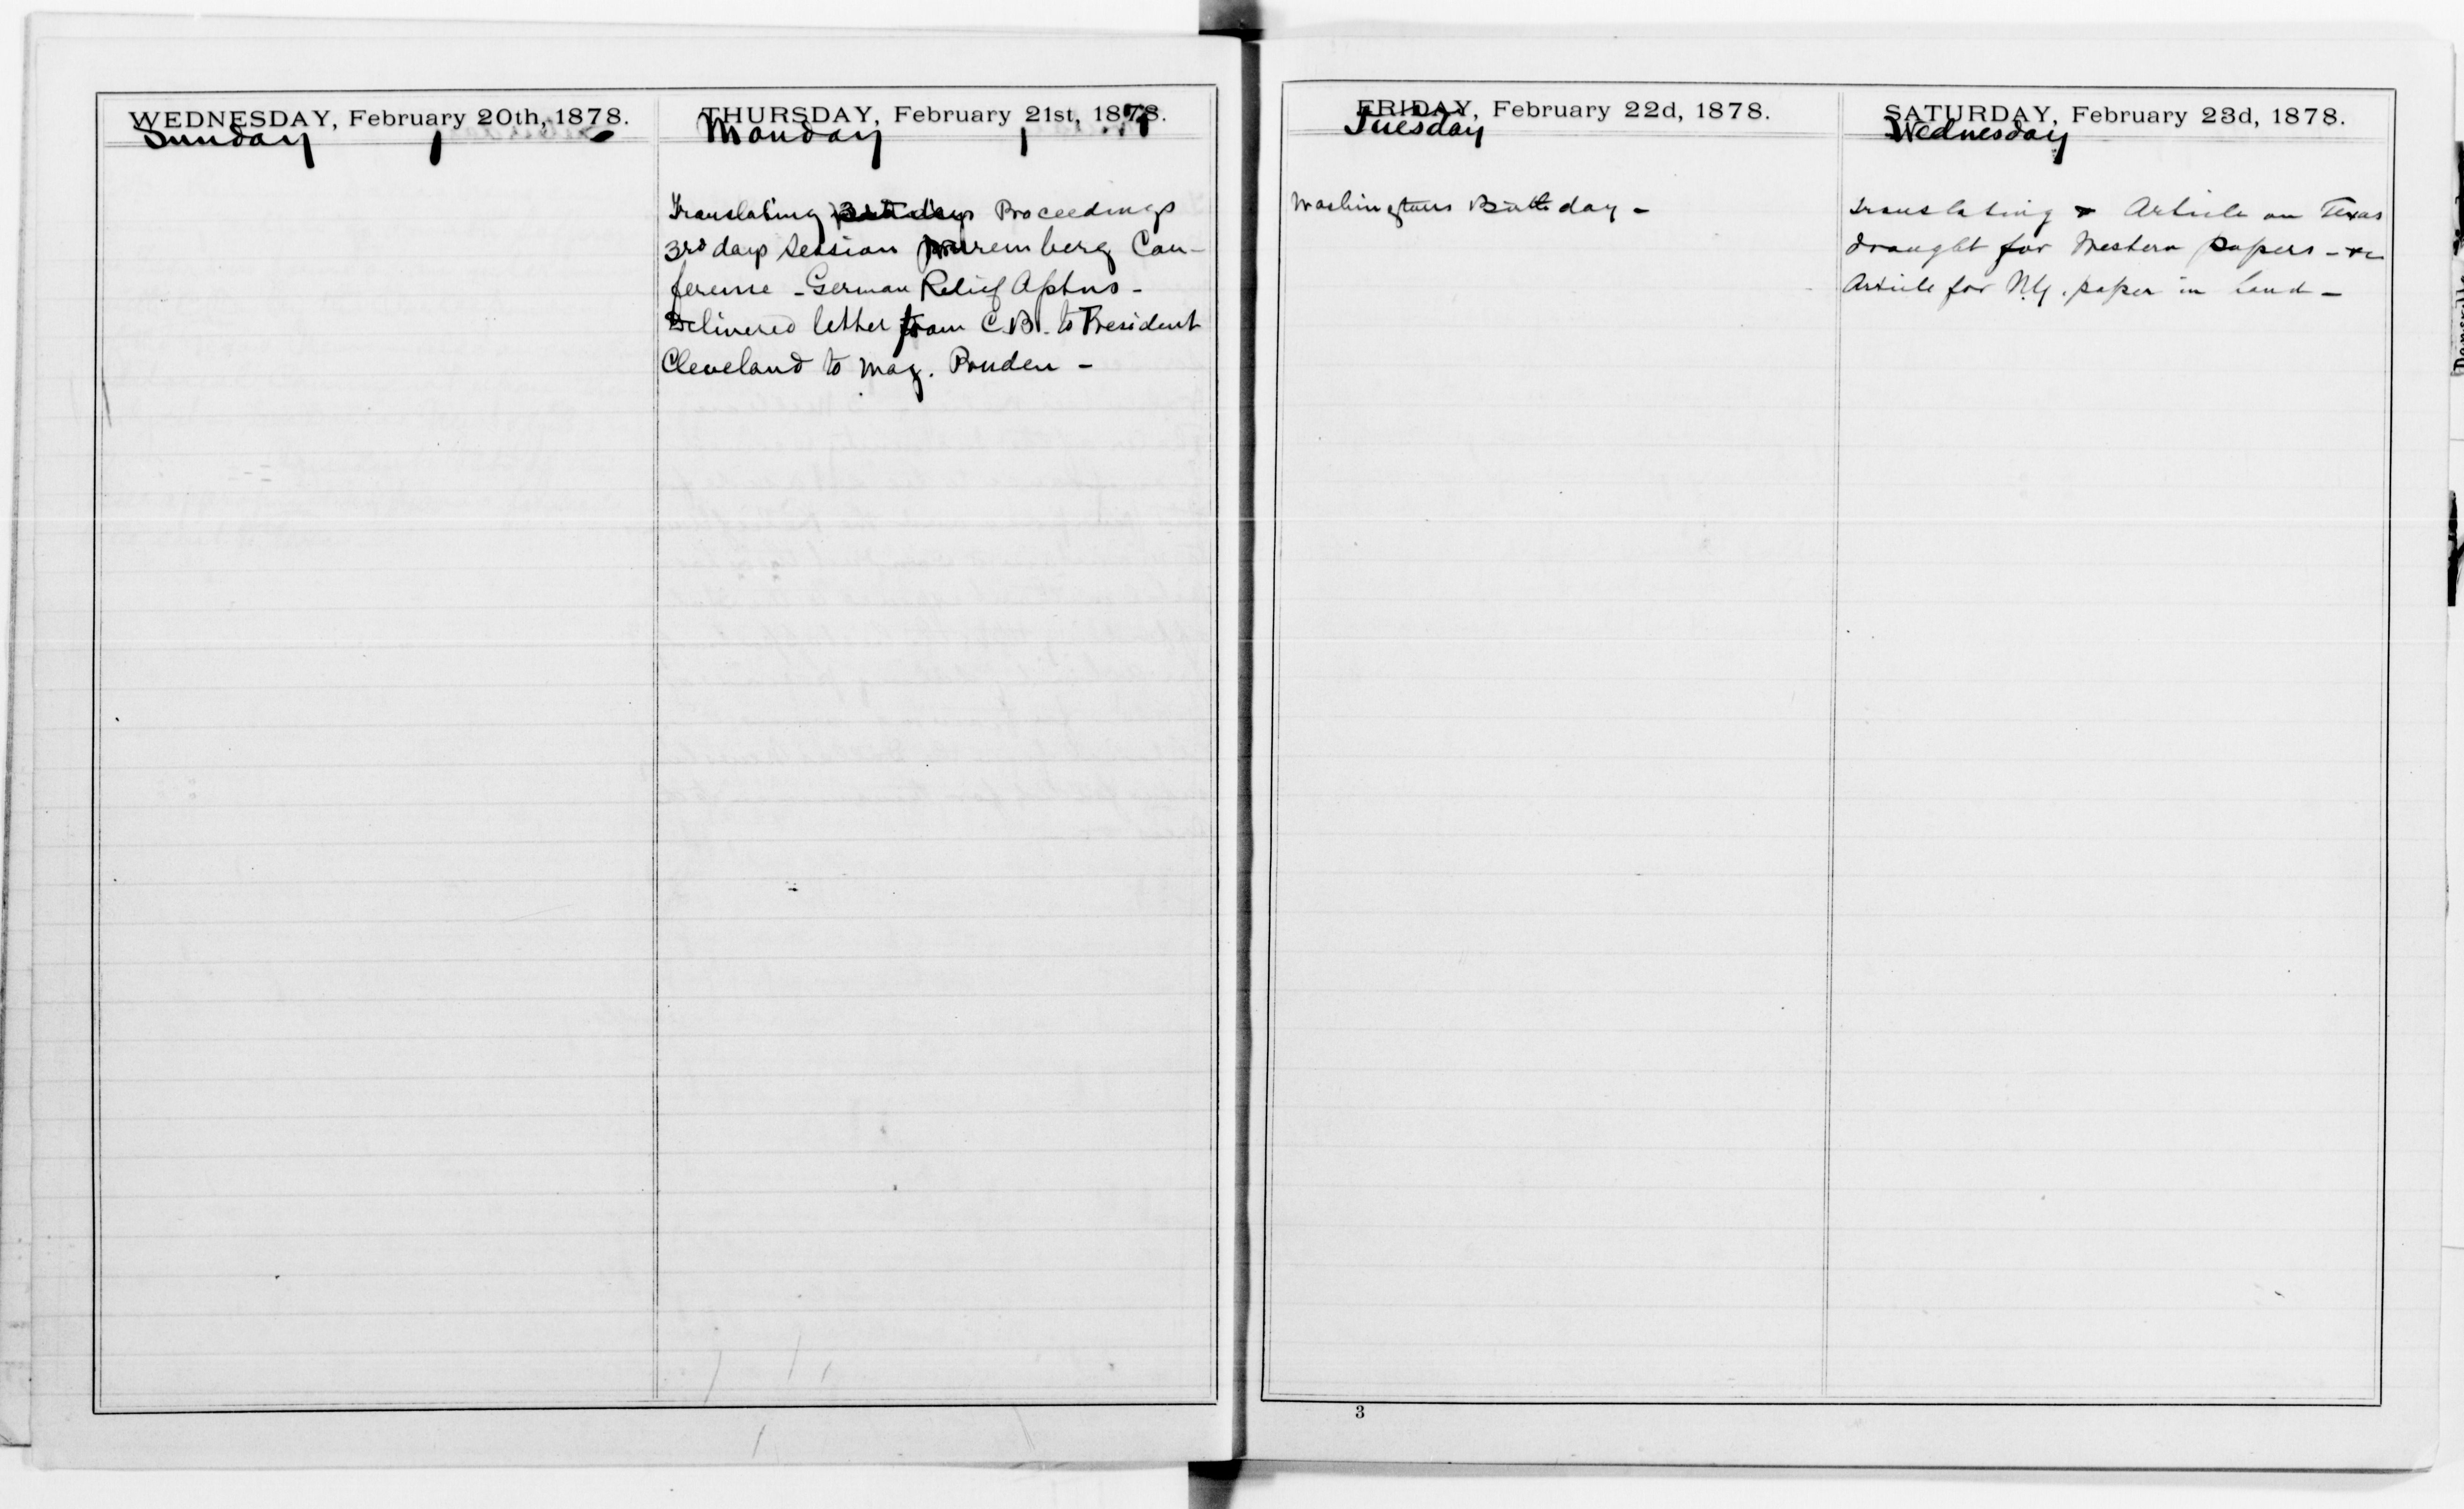 WEDNESDAY, February 20th, 1878.
Sunday
THURSDAY, February 21st, 1878.
Monday
Translating 3rd days Proceedings
3rd days Session Nuremberg Con-
ference - German Relief Asstns -
Delivered letter from C.B. to President
Cleveland to Maj. Pruden -
FRIDAY, February 22d, 1878.
Tuesday
Washingtons Birthday -
SATURDAY, February 23d, 1878.
Wednesday
Translating & Article on Texas
drought for Western papers - &c
Article for N.Y. paper in hand -
3